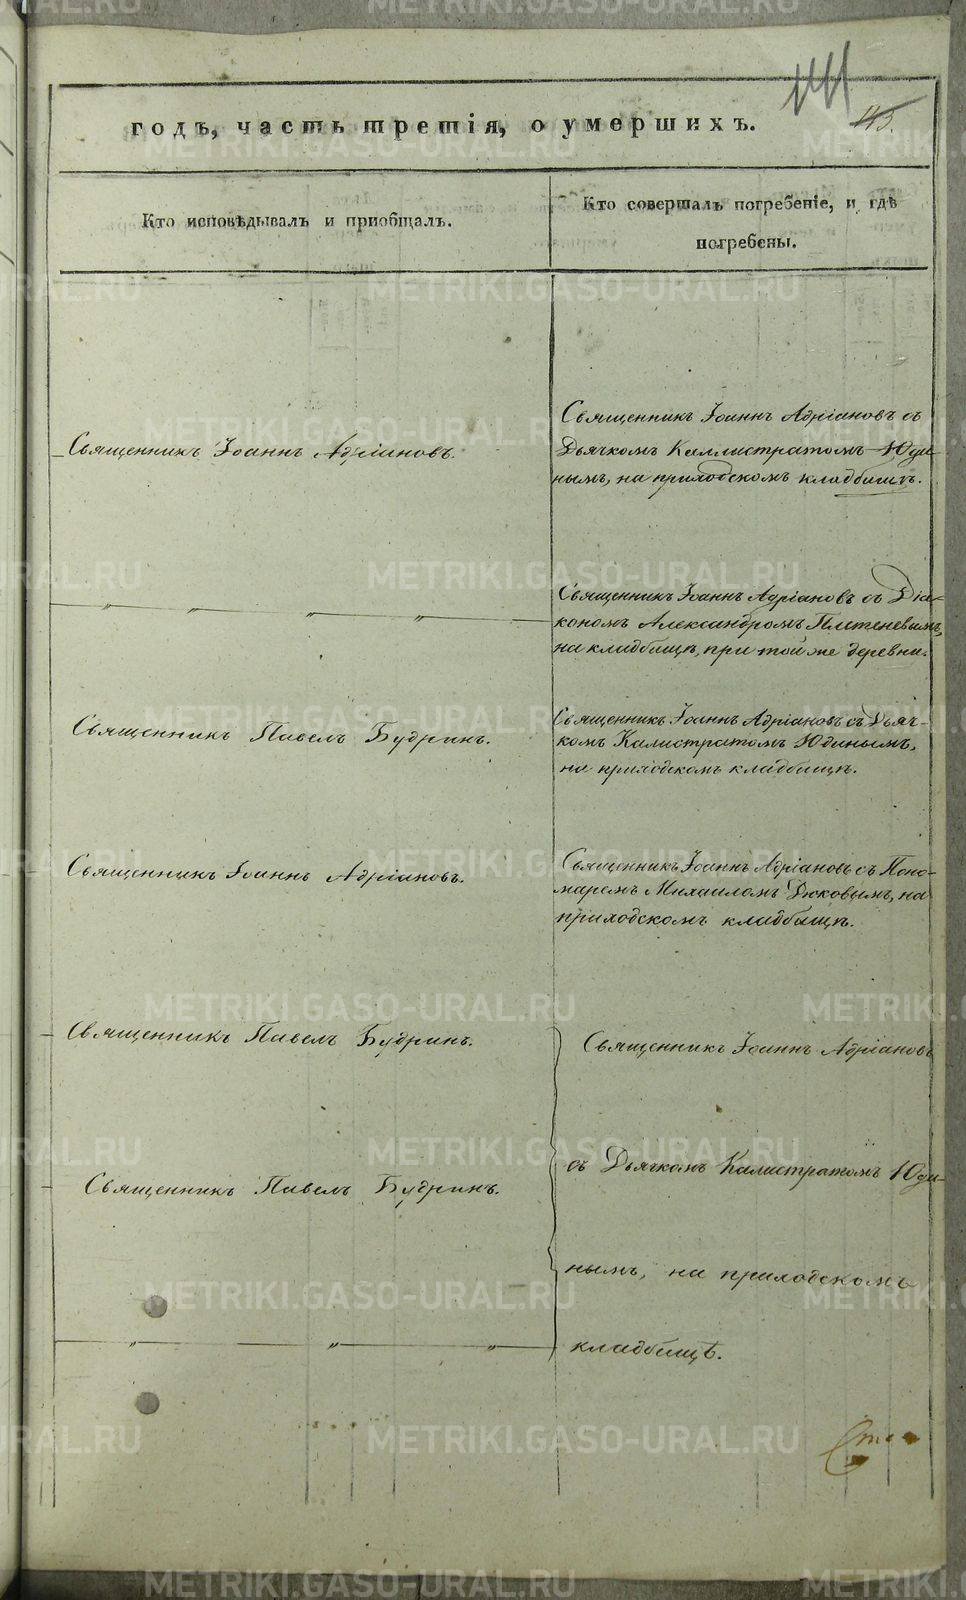 45.
годъ, часть третія, о умершихъ.
Кто исповѣдывалъ и пріобщалъ.
Кто совершалъ погребеніе, и гдѣ
погребены.
Священникъ Іоаннъ Адріановъ.
Священникъ Іоаннъ Адріановъ съ
Дьячкомъ Каллистратомъ Юди-
нымъ, на приходскомъ кладбищѣ.
〃 〃 〃 〃
Священникъ Іоаннъ Адріановъ съ Діа-
кономъ Александромъ Плетеневымъ,
на кладбищѣ, при той же деревни.
Священникъ Павелъ Будринъ.
Священникъ Іоаннъ Адріановъ съ Дьяч-
комъ Калистратомъ Юдинымъ,
на приходскомъ кладбищѣ.
Священникъ Іоаннъ Адріановъ.
Священникъ Іоаннъ Адріановъ съ Поно-
маремъ Михаиломъ Дюковымъ, на
приходскомъ кладбищѣ.
Священникъ Павелъ Будринъ.
Священникъ Павелъ Будринъ.
〃 〃 〃
Священникъ Іоаннъ Адріановъ
съ Дьячкомъ Калистратомъ Юди-
нымъ, на приходскомъ
кладбищѣ.
METRIKI.GASO-URAL.RU